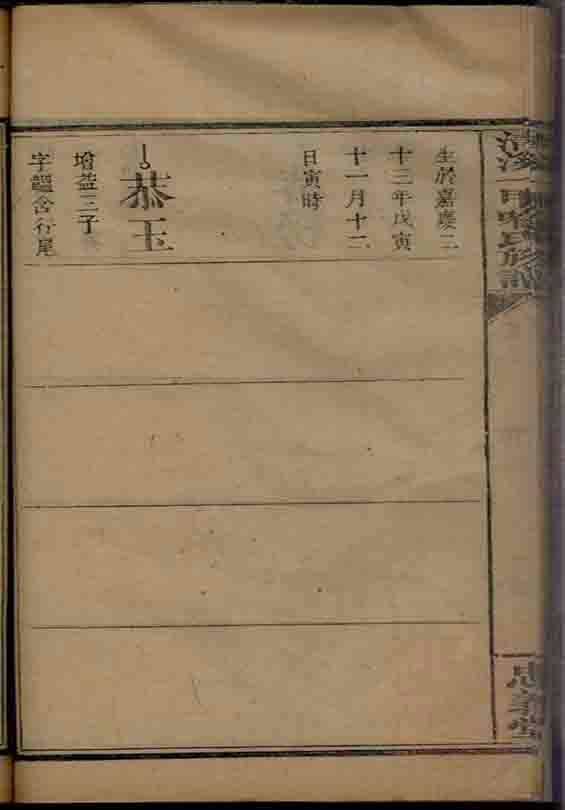 生於嘉慶二
十三年戊寅
十一月十二
日寅時
恭玉
增益三子
字蘊含行尾
忠義堂